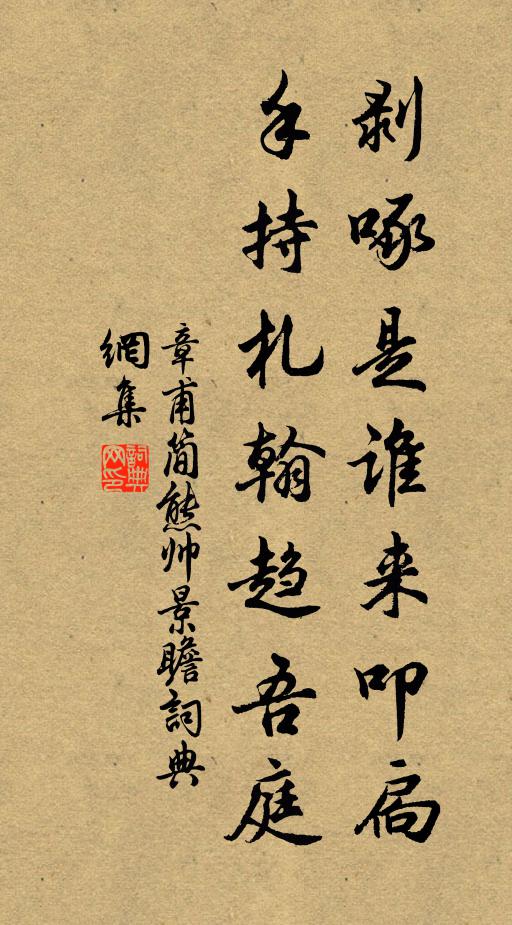 剥啄是谁来叩扃
手持札翰趋吾庭
章甫简熊帅景瞻詞典
網集
詞典
网印